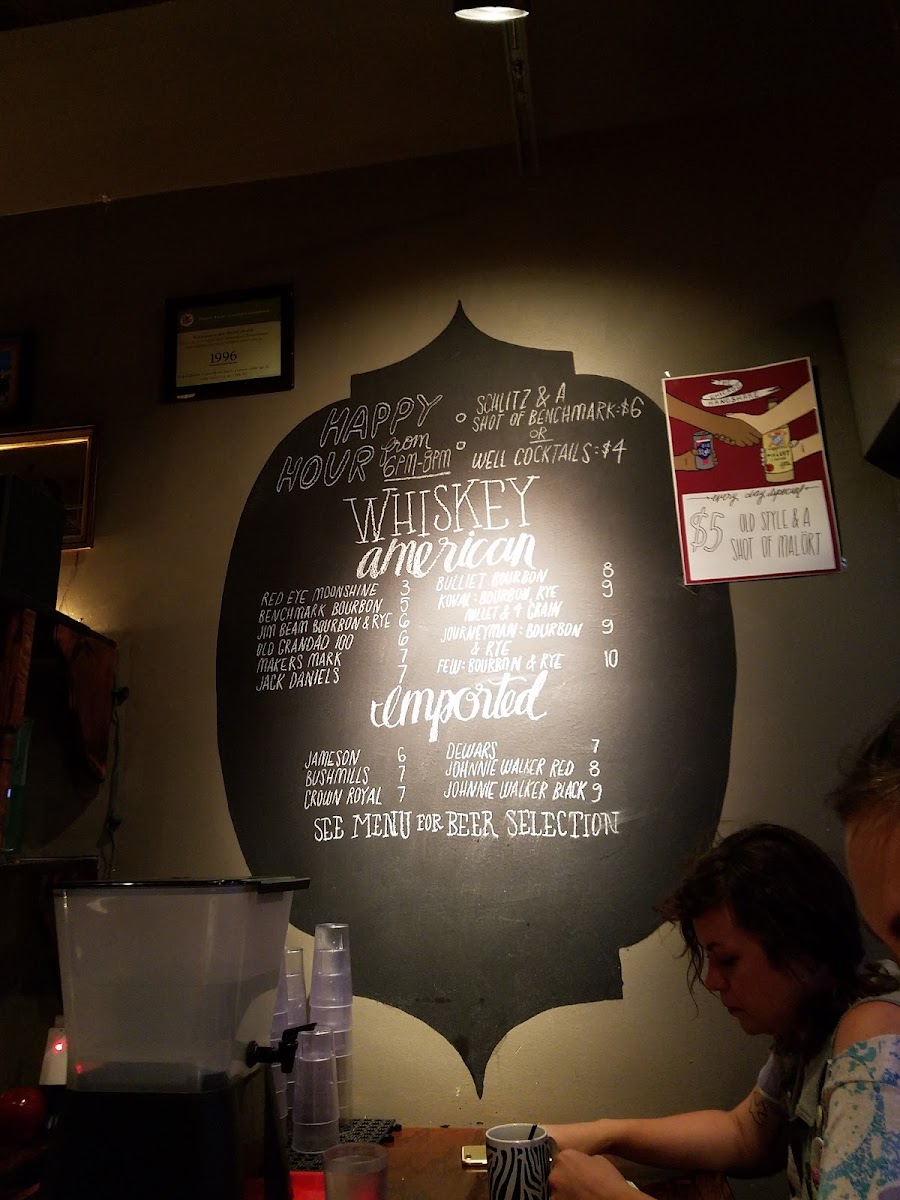 1996
HAPPY
HOUR from
6PM-8PM
SCHLITZ & A
SHOT OF BENCHMARK:$6
OR
WELL COCKTAILS:$4
WHISKEY
american
RED EYE MOONSHINE 3
BENCHMARK BOURBON 5
JIM BEAM BOURBON & RYE 6
OLD GRANDAD 100 6
MAKERS MARK 7
JACK DANIELS 7
BULLIET BOURBON 8
KOVAL: BOURBON, RYE 9
MILLET & 4 GRAIN
JOURNEYMAN: BOURBON 9
& RYE
FEW: BOURBON & RYE 10
Imported
JAMESON 6
BUSHMILLS 7
CROWN ROYAL 7
DEWARS 7
JOHNNIE WALKER RED 8
JOHNNIE WALKER BLACK 9
SEE MENU FOR BEER SELECTION
CHICAGO
HANDSHAKE
every day special
$5 OLD STYLE & A
SHOT OF MALÖRT